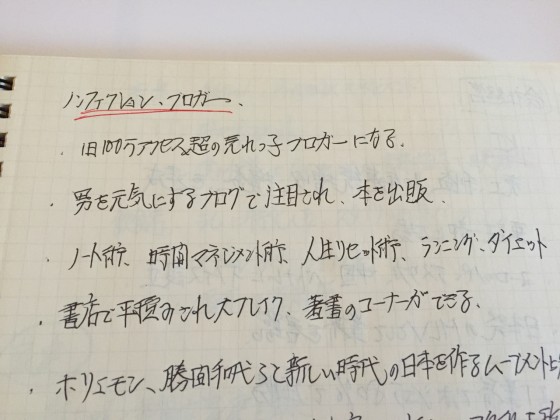 ノンフィクション、ブロガー、
・1日100万アクセス超の売れっ子ブロガーになる。
・男を元気にするブログで注目され、本を出版、
・ノート術、時間マネジメント術、人生リセット術、ランニング、ダイエット
・書店で平積みされ大ブレイク、著書のコーナーができる。
・ホリエモン、勝間和代らと新しい時代の日本を作るムーブメント